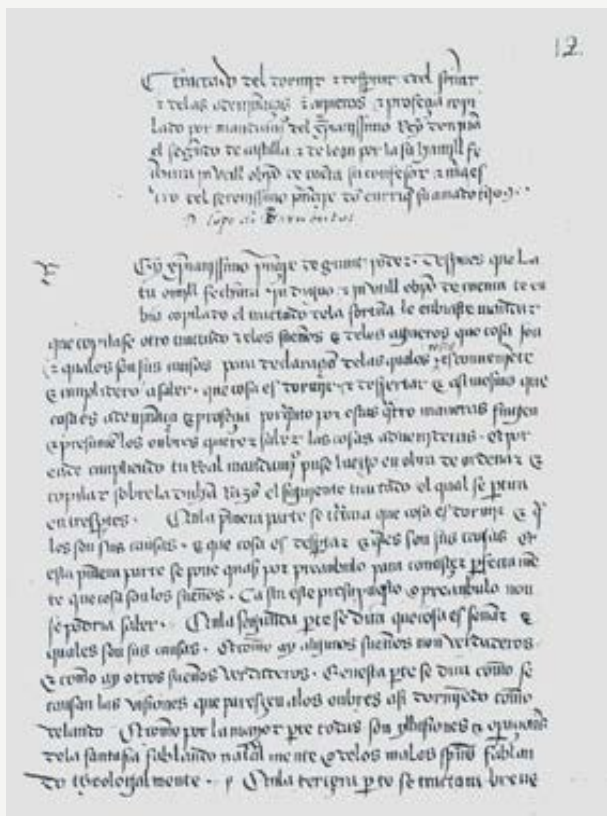 12
Tractado del dormir & despertar & del soñar
& delas adeuinanças & agueros & profeçia copi
lado por mandamio del xpianissimo Rey don juan
el segundo de castilla & de leon por la su humill fe
chura
obpo de cuenca su confesor & maes
tro del serenissimo prinçipe don enrriq su amado fijo
lope de Barrientos
Rey xpianissimo prinçipe de grant poder. despues que la
tu omill fechura
obpo de cuenca te en
bio copilado el tractado dela fortuna le enbiaste mandar
que copilase otro tractado delos sueños & delos agueros que cosa son
& quales son sus causas para declaraçion delas quales es conueniente
& conplidero a saber. que cosa es dormir & despertar & asi mesmo que
cosa es adeuinança & profeçia por qnto por estas qtro maneras fingen
& presumen los onbres querer saber las cosas aduenideras. & por
ende cunpliendo tu Real mandamio puse luego en obra de ordenar &
copilar sobre la dicha Razon el siguiente tractado el qual se parte
en tres ptes. Enla pimera parte se tractara que cosa es dormir & qua
les son sus causas. & que cosa es despertar & qles son sus causas &
esta pimera parte se pone quasi por preanbulo para conosçer perfectame
te que cosa son los sueños. Ca sin este presupuesto o preanbulo non
se podria saber. Enla segunda pte se dira que cosa es soñar &
quales son sus causas. & como ay algunos sueños non verdaderos.
& como ay otros sueños verdaderos. & en esta pte se dira como se
causan las visiones que paresçen alos onbres asi dormiendo como
velando & como por la mayor pte todas son yllusiones & operaçiones
dela fantasia fablando naturalmente o delos malos spus fablan
do theologalmente. Enla terçera pte se tractara breue